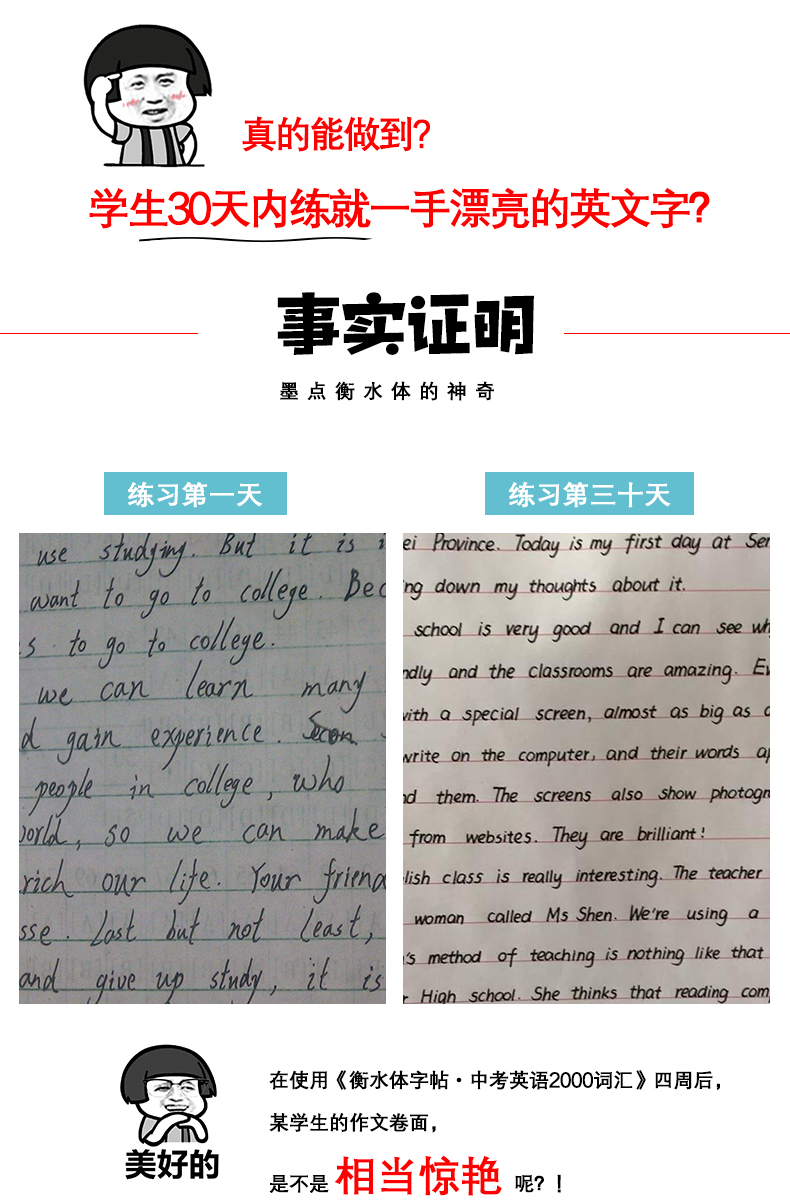 真的能做到?
学生30天内练就一手漂亮的英文字?
事实证明
墨点衡水体的神奇
练习第一天
use studying. But it is i
want to go to college. Bec
s. to go to college.
we can learn many
d gain experience.
people in college, who
world, so we can make
rich our life. Your friend
sse. Last but not least,
and give up study, it is
练习第三十天
ei Province. Today is my first day at Sen
ng down my thoughts about it.
school is very good and I can see wh
ndly and the classrooms are amazing. Ev
with a special screen, almost as big as a
write on the computer, and their words ap
nd them. The screens also show photogr
from websites. They are brilliant!
lish class is really interesting. The teacher
woman called Ms Shen. We're using a
's method of teaching is nothing like that
r High school. She thinks that reading com
美好的
在使用《衡水体字帖·中考英语2000词汇》四周后,
某学生的作文卷面,
是不是 相当惊艳 呢?!